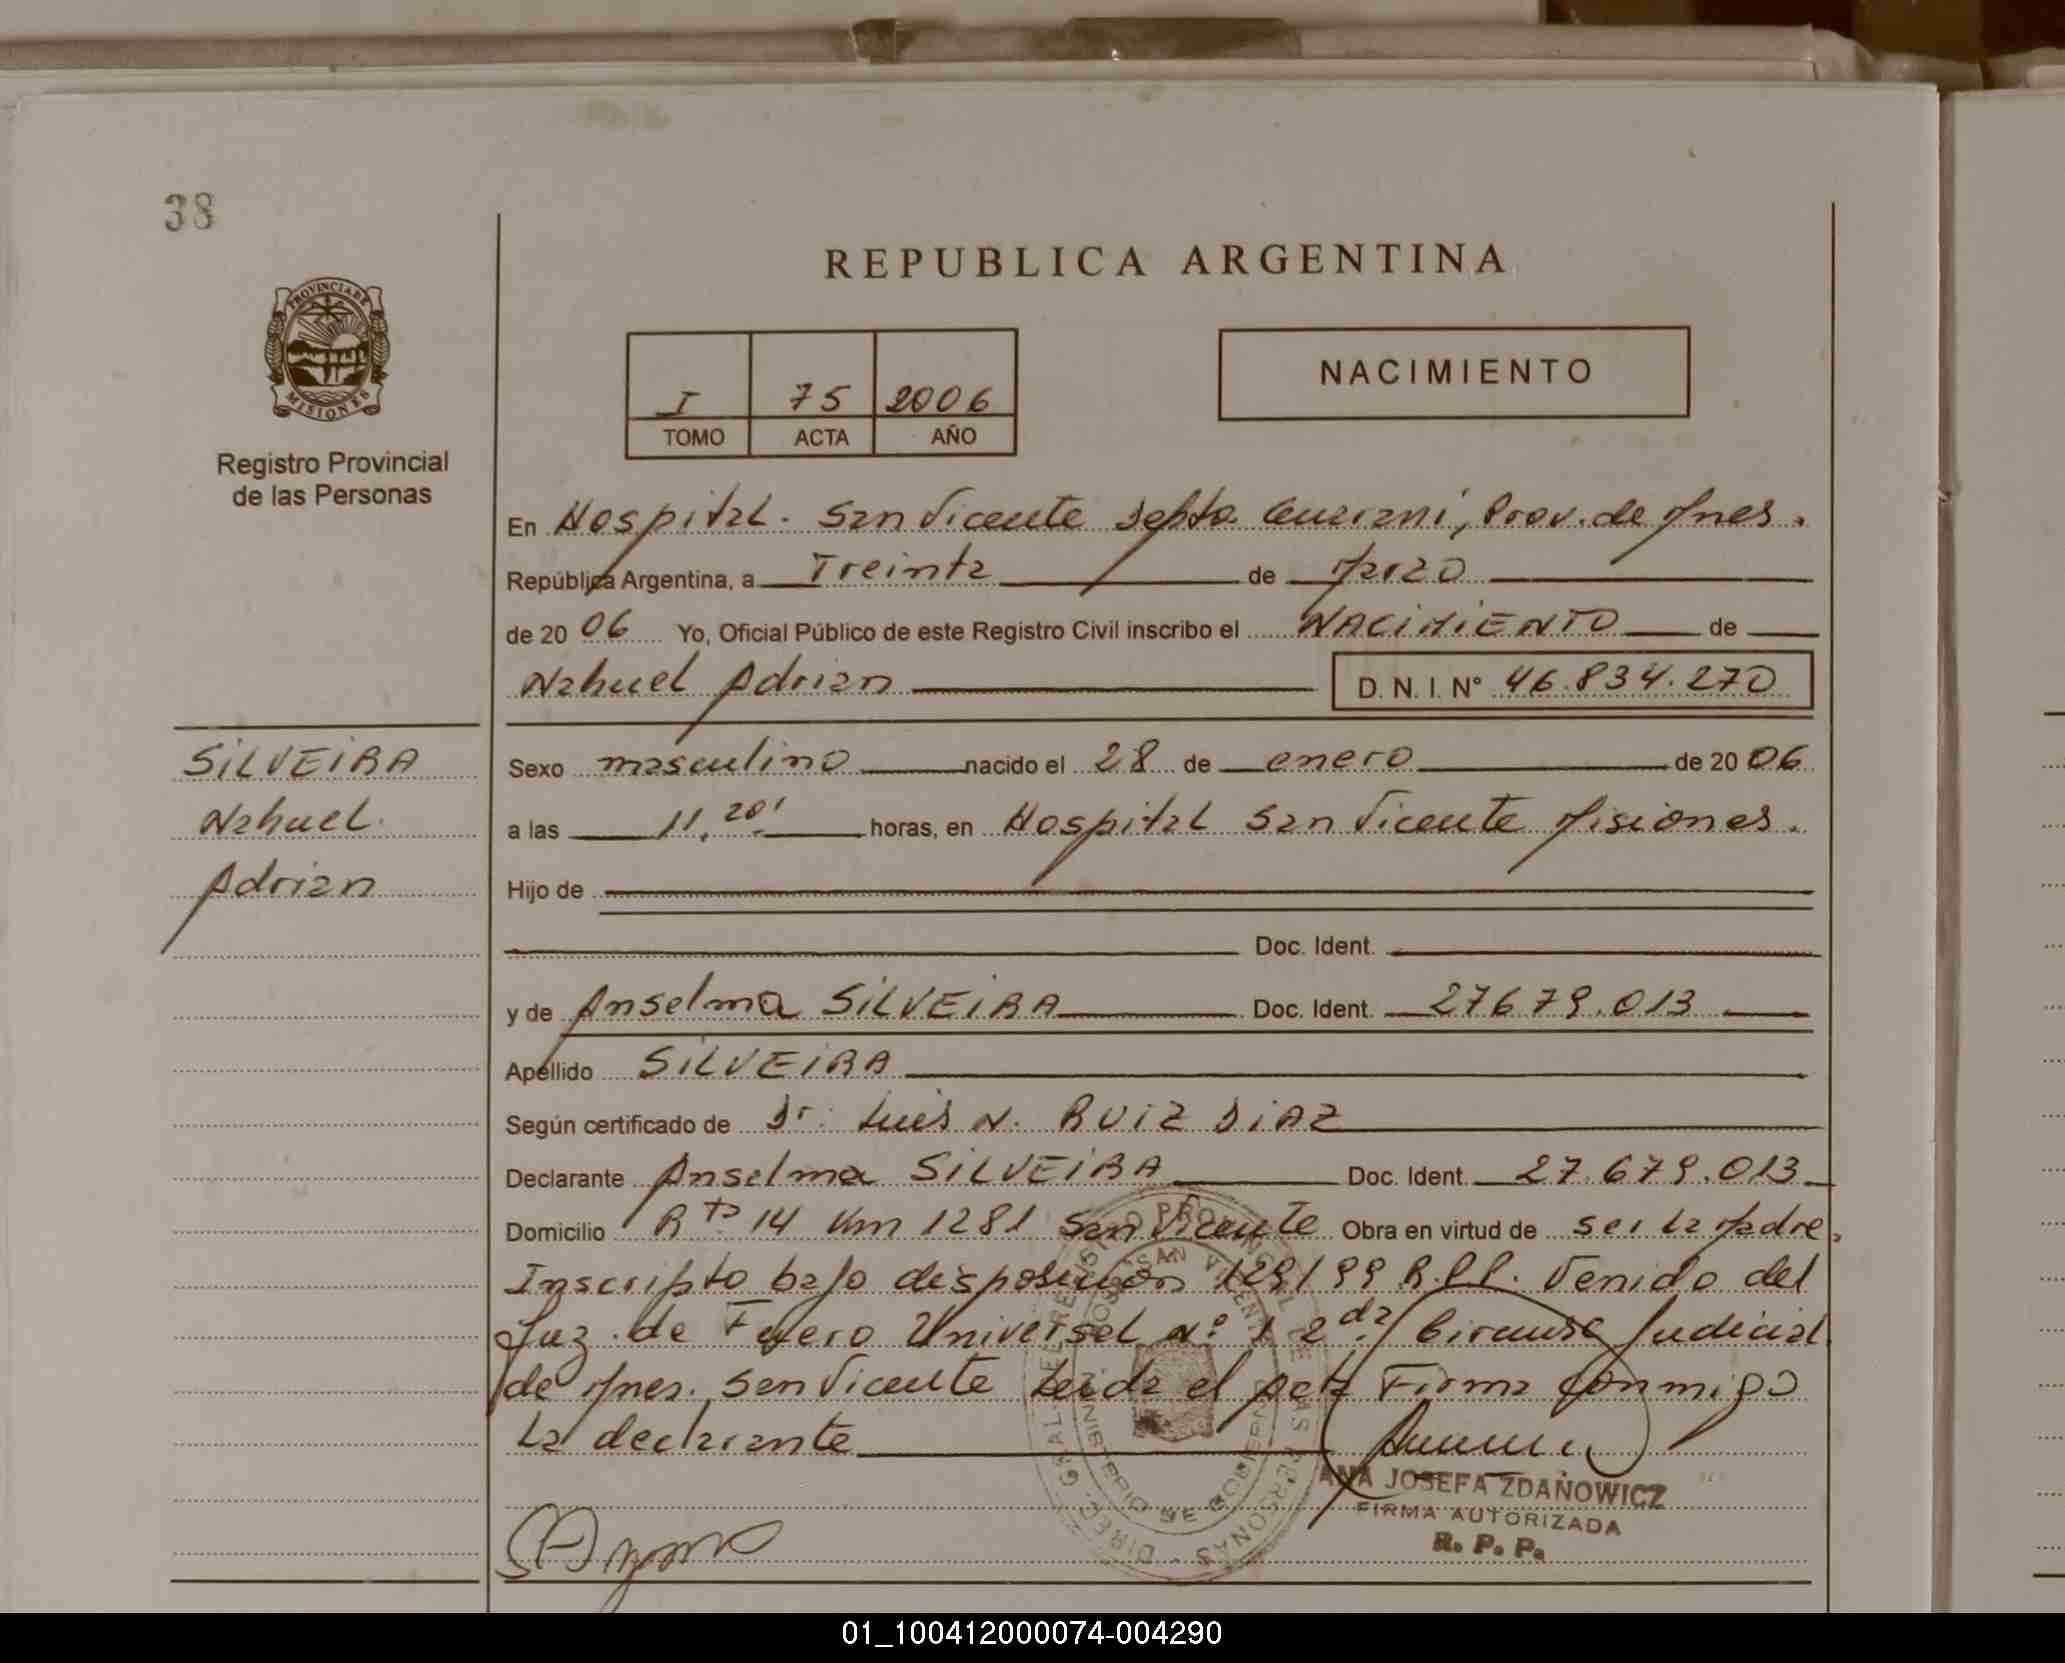 38
REPUBLICA ARGENTINA
PROVINCIA DE
MISIONES
Registro Provincial
de las Personas
I 75 2006
TOMO ACTA AÑO
NACIMIENTO
En Hospital. San Vicente Depto Guaraní, Prov. de Mnes.
República Argentina, a Treinta de Marzo
de 20 06 Yo, Oficial Público de este Registro Civil inscribo el NACIMIENTO de
Nahuel Adrian D. N. I. N° 46.834.270
SILVEIRA
Nahuel
Adrian
Sexo masculino nacido el 28 de enero de 20 06
a las 11.20' horas, en Hospital San Vicente Misiones.
Hijo de
Doc. Ident.
y de Anselma SILVEIRA Doc. Ident. 27679.013
Apellido SILVEIRA
Según certificado de Dr. Luis N. RUIZ DIAZ
Declarante Anselma SILVEIRA Doc. Ident. 27.679.013
Domicilio Rta 14 Km 1281 San Vicente Obra en virtud de ser la Madre.
Inscripto bajo disposición 129/99 R.P.P. Venido del
Juz. de Fuero Universal N° 1 2da Circunsc Judicial
de Mnes. San Vicente Leida el Acta Firma conmigo
la declarante
ANA JOSEFA ZDANOWICZ
FIRMA AUTORIZADA
R. P. P.
DIREC. GRAL. DEL REGISTRO PROVINCIAL DE LAS PERSONAS
SAN VICENTE
MINISTERIO DE GOBIERNO
01_100412000074-004290